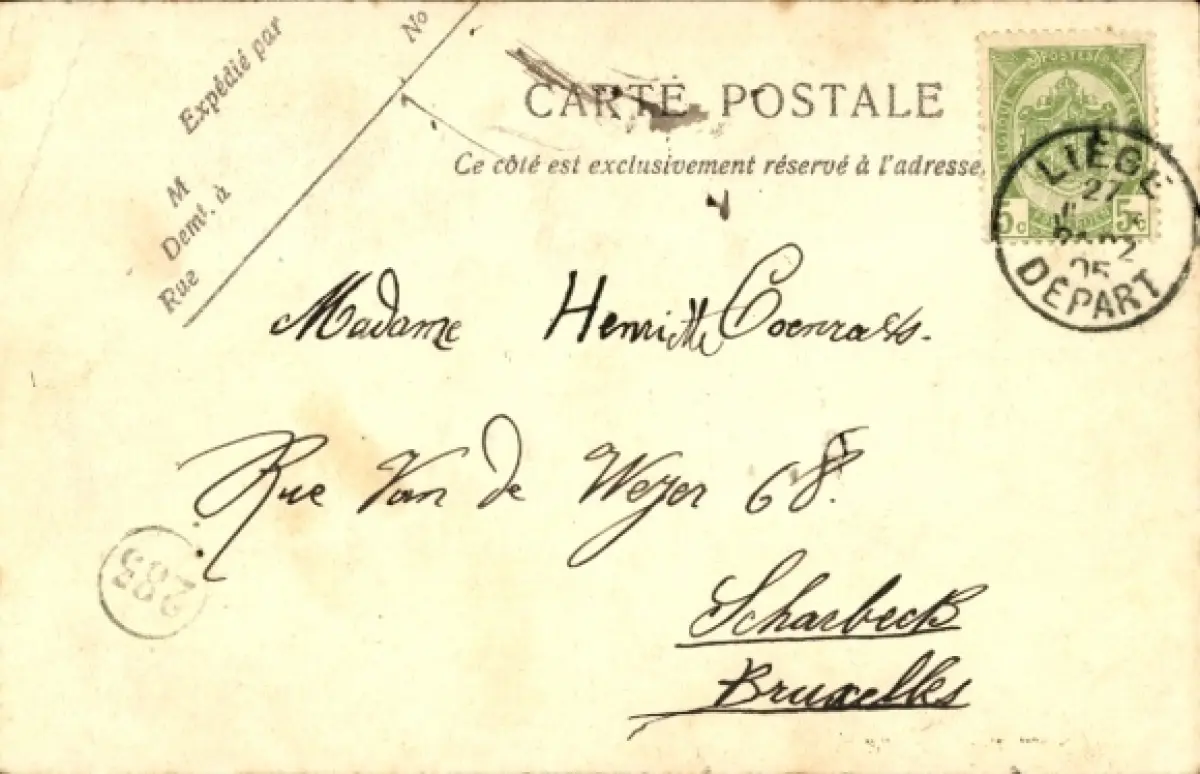 Expédié par
No
M
Demt. à
Rue
CARTE POSTALE
Ce côté est exclusivement réservé à l'adresse.
POSTES
5c 5c
LIÉGE
27
05
DÉPART
Madame Henriette Coenraets.
Rue Van de Weyer 68.
285
Scharbeck
Bruxelles